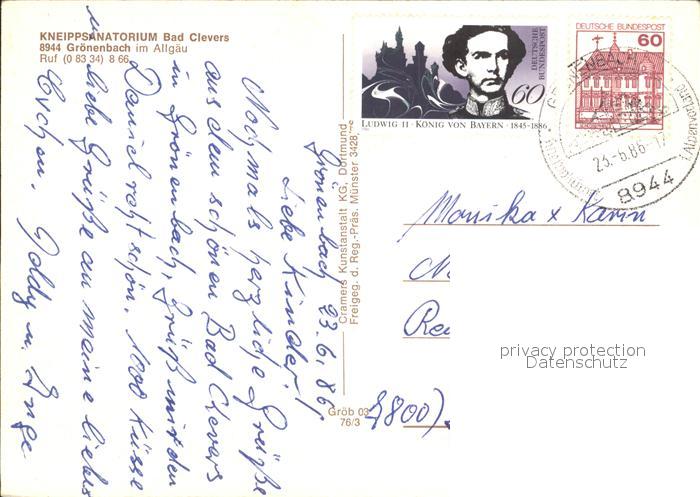 KNEIPPSANATORIUM Bad Clevers
8944 Grönenbach im Allgäu
Ruf (0 83 34) 8 66
Grönenbach 23.6.86
Liebe Kinder!
Nochmals herzliche Grüße
aus dem schönen Bad Clevers
in Grönenbach, Grüß mir den
Daniel recht schön. 1000 Küsse
u. liebe Grüße an meine liebe
Goldy u. Inge
Cramers Kunstanstalt KG, Dortmund
Freigeg. d. Reg.-Präs. Münster 3428
Gröb 03
76/3
DEUTSCHE
BUNDESPOST
60
LUDWIG II · KÖNIG VON BAYERN · 1845-1886
DEUTSCHE BUNDESPOST
60
23.-6.86-17
8944
Monika & Karin
8800)
privacy protection
Datenschutz